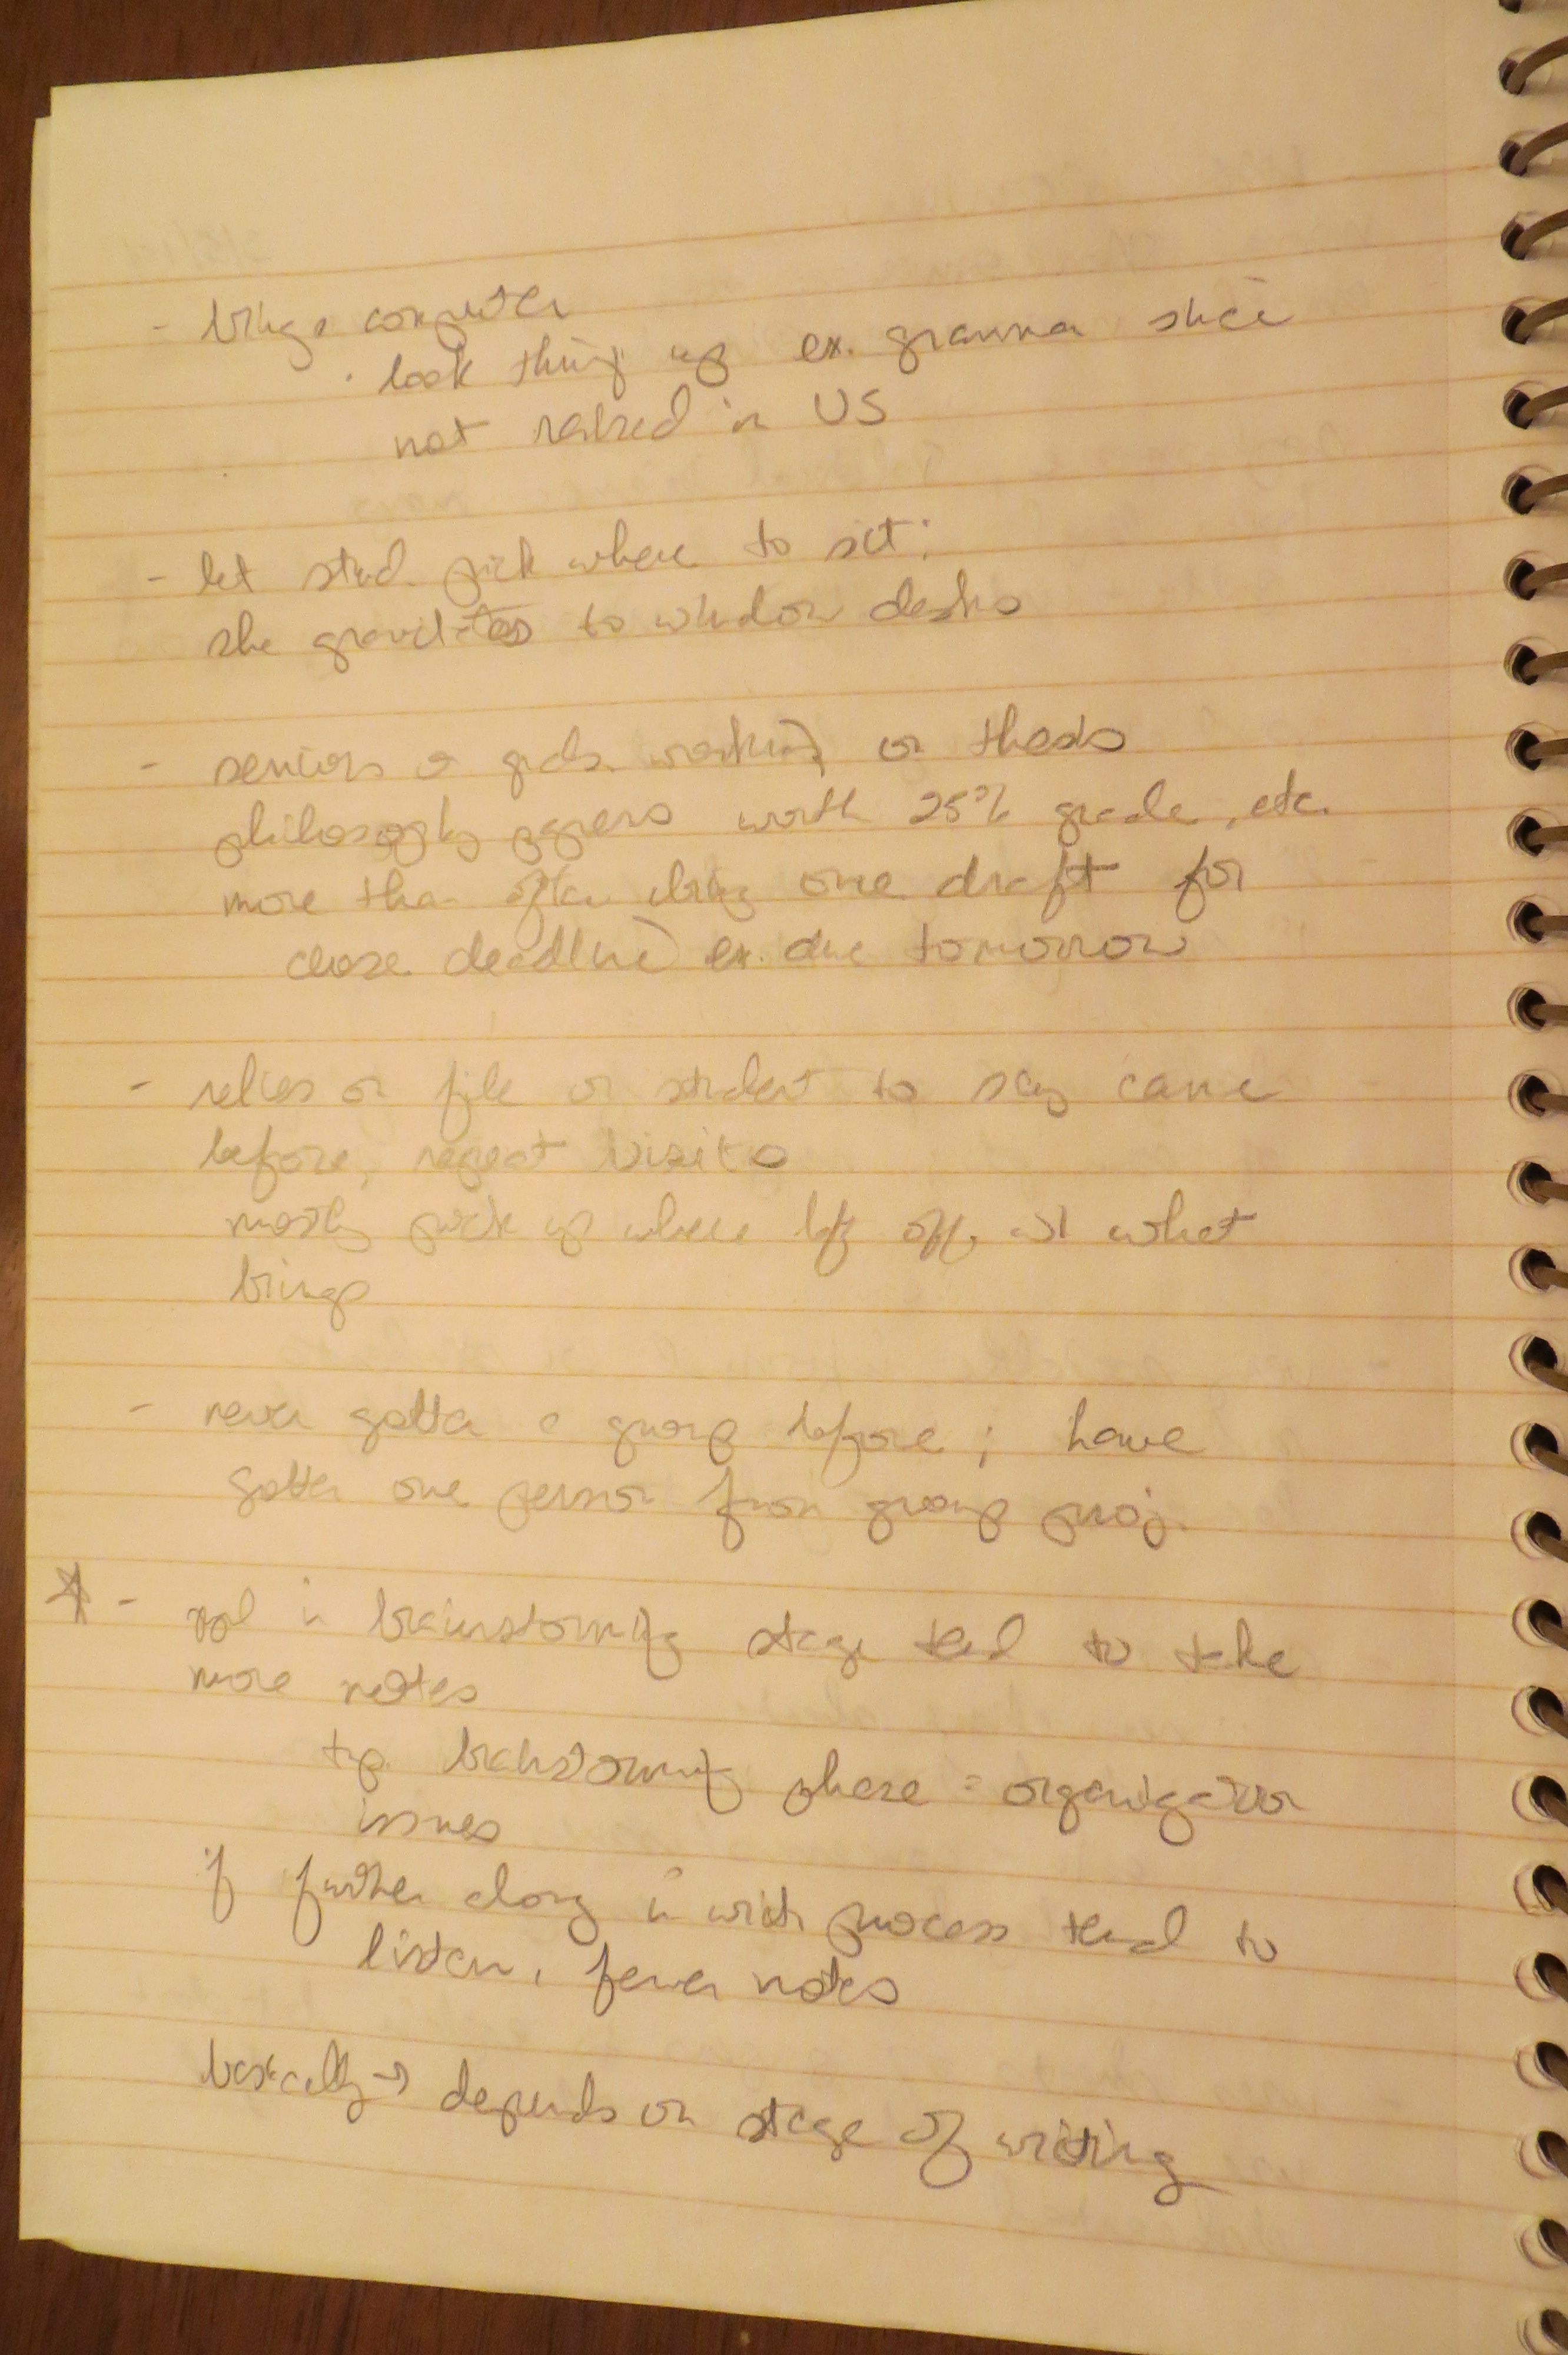 - brings computer
· look things up ex. grammar since
not raised in US
- let stud. pick where to sit;
she gravitates to window desks
- seniors or grads. working on thesis
philosophy papers worth 25% grade, etc.
more than often bring one draft for
close deadline) ex. due tomorrow
- relies on file or student to say came
before, repeat visits
mostly pick up where left off, w/ what
brings
- never gotten a group before; have
gotten one person from group proj.
☆ - in brainstorming stage tend to take
more notes
brainstorming phase = organization
issues
if further along in process tend to
listen, fewer notes
basically → depends on stage of writing